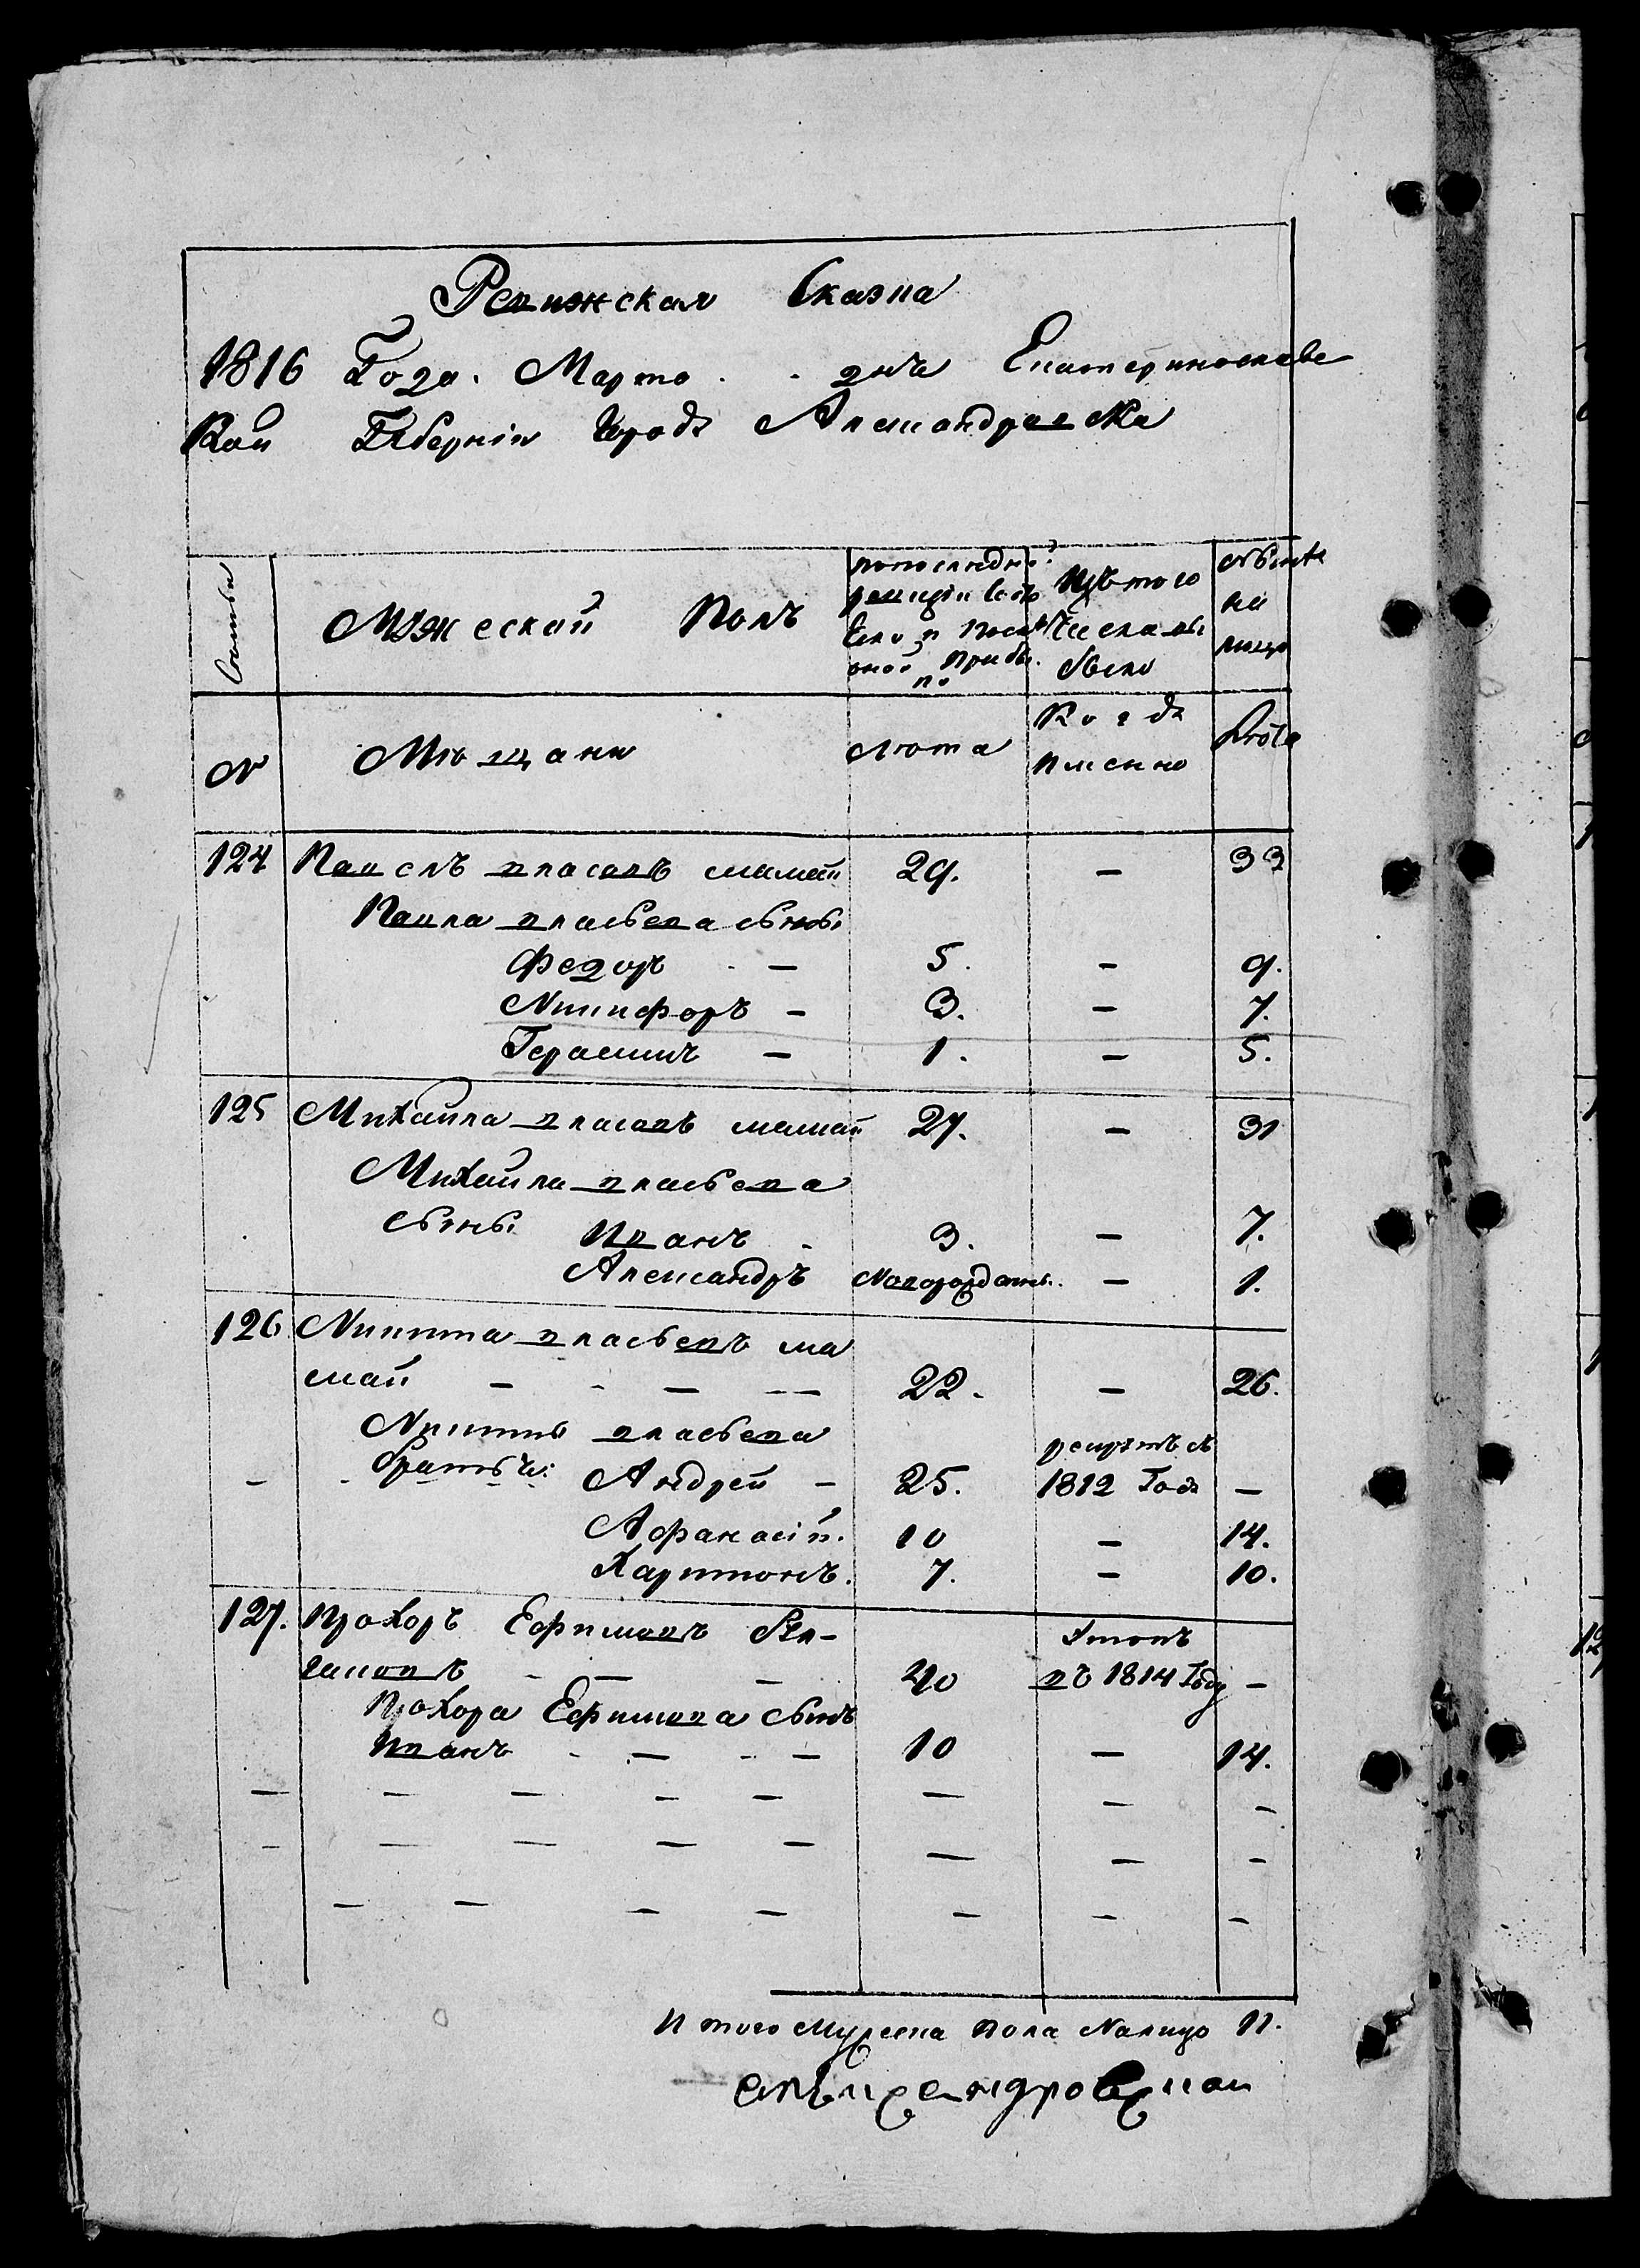 Ревижская Сказка
1816 Года. Марта дня Екатеринославс
Кой Губернiи города Александровска
Семьи
Мужеской Полъ
по последней ревизiи состояло и после оной прибыло
Изъ того числа выбыло
Ныне на лицо
№ Мѣщани лѣта Когда именно лѣта
124 Павелъ власовъ мамай 29. — 33
Павла власьева сыновья
Федоръ — 5. — 9.
Никифоръ — 3. — 7.
Герасимъ — 1. — 5.
125 Михайла власовъ мамай 27. — 31
Михайла власьева
сыны Иванъ 3. — 7.
Александръ Новорожденны. — 1.
126 Никита власьевъ ма
май — — — 22. — 26.
Никиты власьева
братья: Андрей — 25. рекрутъ с 1812 Года —
Афанасiй. 10 — 14.
Харитонъ. 7. — 10.
127. Прохоръ Ефимовъ
— — 40 Умеръ въ 1814 Году —
Прохора Ефимова сынъ
Иванъ — — 10 — 14.
Итого Мужеска пола Налицо 11.